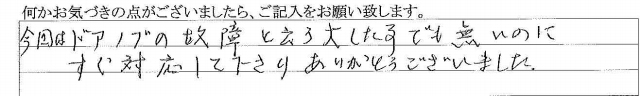 何かお気づきの点がございましたら、ご記入をお願い致します。
今回はドアノブの故障と云う大した事でも無いのに
すぐ対応して下さりありがとうございました.